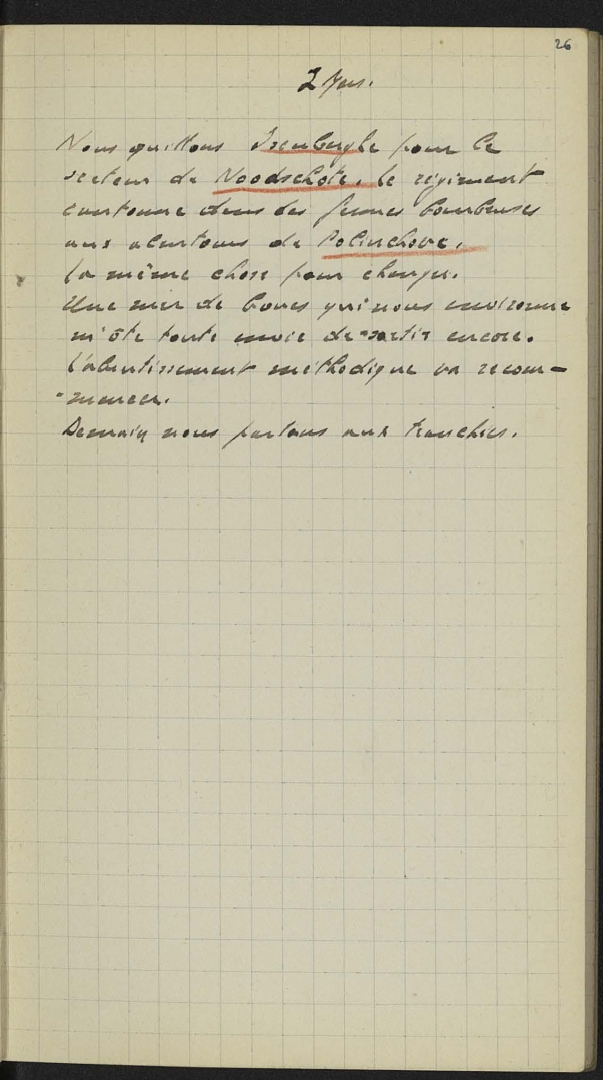 26
2 Jan.
Nous quittons Isenberghe pour le
secteur de Noodschote. Le régiment
cantonne dans des fermes bourbeuses
aux alentours de Polinchove.
La même chose pour changer.
Une mer de boues qui nous environne
m'ôte toute envie de sortir encore.
L'abrutissement méthodique va recom-
-mencer.
Demain nous partons aux tranchées.